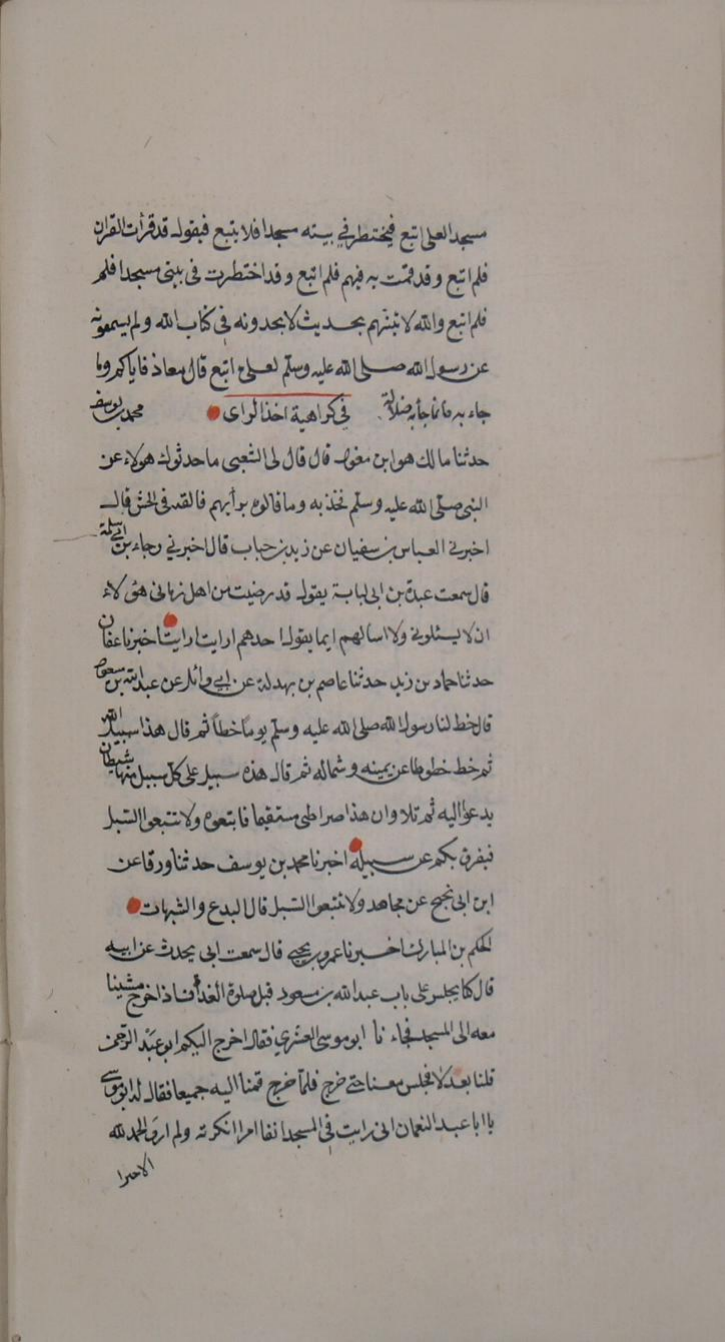 مسجدا لعلى اتبع فيختطر في بيته مسجدا فلا يتبع فيقول قد قرأت القران
فلم اتبع وقد قمت به فيهم فلم اتبع وقد اختطرت فى بيتى مسجدا فلم
فلم اتبع والله لاتينهم بحديث لا يجدونه في كتاب الله ولم يسمعونه
عن رسول الله صلى الله عليه وسلم لعلى اتبع قال معاذ فاياكم وما
جاء به فانما جاء به ضلالة في كراهية اخذ الراى محمد بن يوسف
حدثنا مالك هو ابن مغول قال قال لى الشعبى ما حدثوك هولاء عن
النبى صلى الله عليه وسلم فخذ به وما قالوه برأيهم فالقه فى الحش قال
اخبرني العباس بن سفيان عن زيد بن حباب قال اخبرني رجاء بن ابي سلمة
قال سمعت عبدة بن ابى لبابة يقول قد رضيت من اهل زمانى هؤلاء
ان لا يسئلونى ولا اسالهم ايما يقول احدهم ارايت ارايت اخبرنا عفان
حدثنا حماد بن زيد حدثنا عاصم بن بهدلة عن ابي وائل عن عبد الله بن مسعود
قال خط لنا رسول الله صلى الله عليه وسلم يوما خطا ثم قال هذا سبيل الله
ثم خط خطوطا عن يمينه وشماله ثم قال هذه سبيل على كل سبيل منها شيطان
يدعوا اليه ثم تلا وان هذا صراطى مستقيما فاتبعوه ولا تتبعوا السبل
فيفرق بكم عن سبيله اخبرنا محمد بن يوسف حدثنا ورقا عن
ابن ابى نجيح عن مجاهد ولا تتبعوا السبل قال البدع والشبهات
الحكم بن المبارك اخبرنا عمرو بن يحيى قال سمعت ابى يحدث عن ابيه
قال كنا نجلس على باب عبد الله بن مسعود قبل صلوة الغداة فاذا خرج مشينا
معه الى المسجد فجاء نا ابو موسى العشري فقال اخرج اليكم ابو عبد الرحمن
قلنا بعد لا فجلس معنا حتى خرج فلما خرج قمنا اليه جميعا فقال له ابو موسى
يا ابا عبد النعمان انى رايت في المسجد انفا امرا انكرته ولم ار والحمد لله
الا خيرا